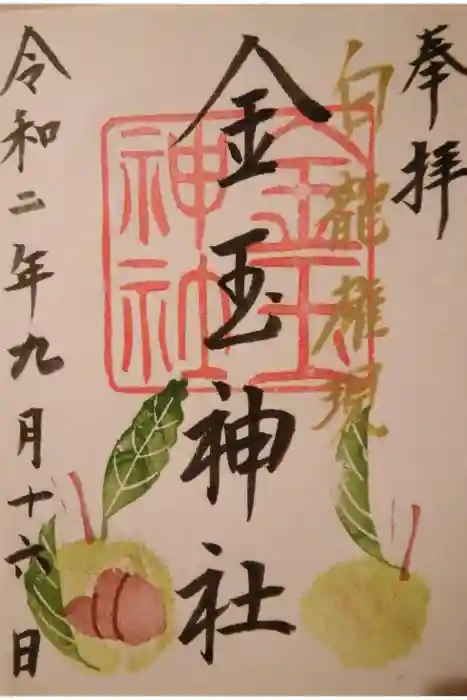 奉拝
白龍権現
金玉神社
金玉神社
令和二年九月十六日